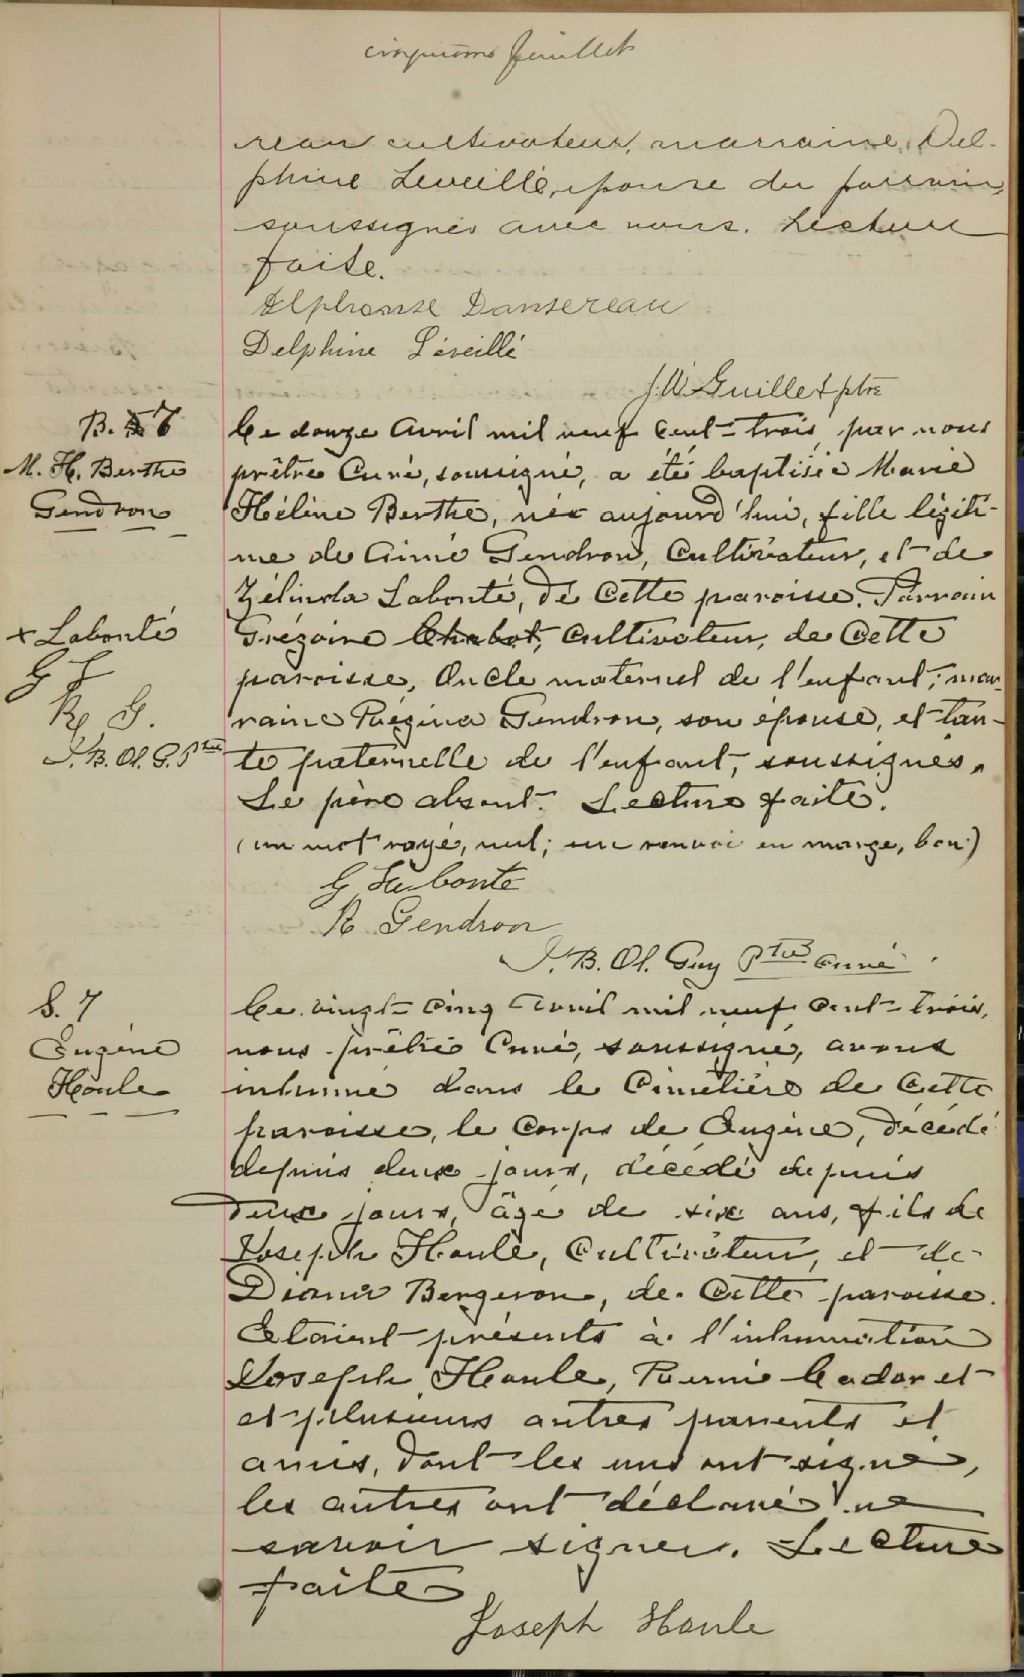 cinquième feuillet
reau cultivateur, marraine, Del-
phine Leveillé, épouse du parrain,
soussignés avec nous. Lecture
faite.
Alphonse Dansereau
Delphine Léveillé
J. W. Guillet ptre
B. 7
M. H. Berthe
Gendron
Le douze Avril mil neuf cent-trois, par nous
prêtre Curé, soussigné, a été baptisée Marie
Hélène Berthe, née aujourd'hui, fille légiti-
me de Aimé Gendron, Cultivateur, et de
Zélinda Labonté, de Cette paroisse. Parrain
+ Labonté
G L
R. G.
J. B. Ol. G. Ptre
Grégoire Chabot, Cultivateur, de Cette
paroisse, Oncle maternel de l'enfant; mar-
raine Régina Gendron, son épouse, et tan-
te paternelle de l'enfant, soussignés.
Le père absent. Lecture faite.
(un mot rayé, nul; un renvoi en marge, bon)
G Labonte
R Gendron
J. B. Ol. Guy Ptre Curé
S. 7
Eugène
Houle
Le vingt-cinq Avril mil neuf cent-trois,
nous prêtre Curé, soussigné, avons
inhumé dans le Cimetière de Cette
paroisse, le Corps de Eugène, décédé
depuis deux jours, décédé depuis
deux jours, âgé de six ans, fils de
Joseph Houle, Cultivateur, et de
Diana Bergeron, de Cette paroisse.
Etaient présents à l'inhumation
Joseph Houle, et
et plusieurs autres parents et
amis, dont les uns ont signé,
les autres ont déclaré ne
savoir signer. Lecture
faite
Joseph Houle